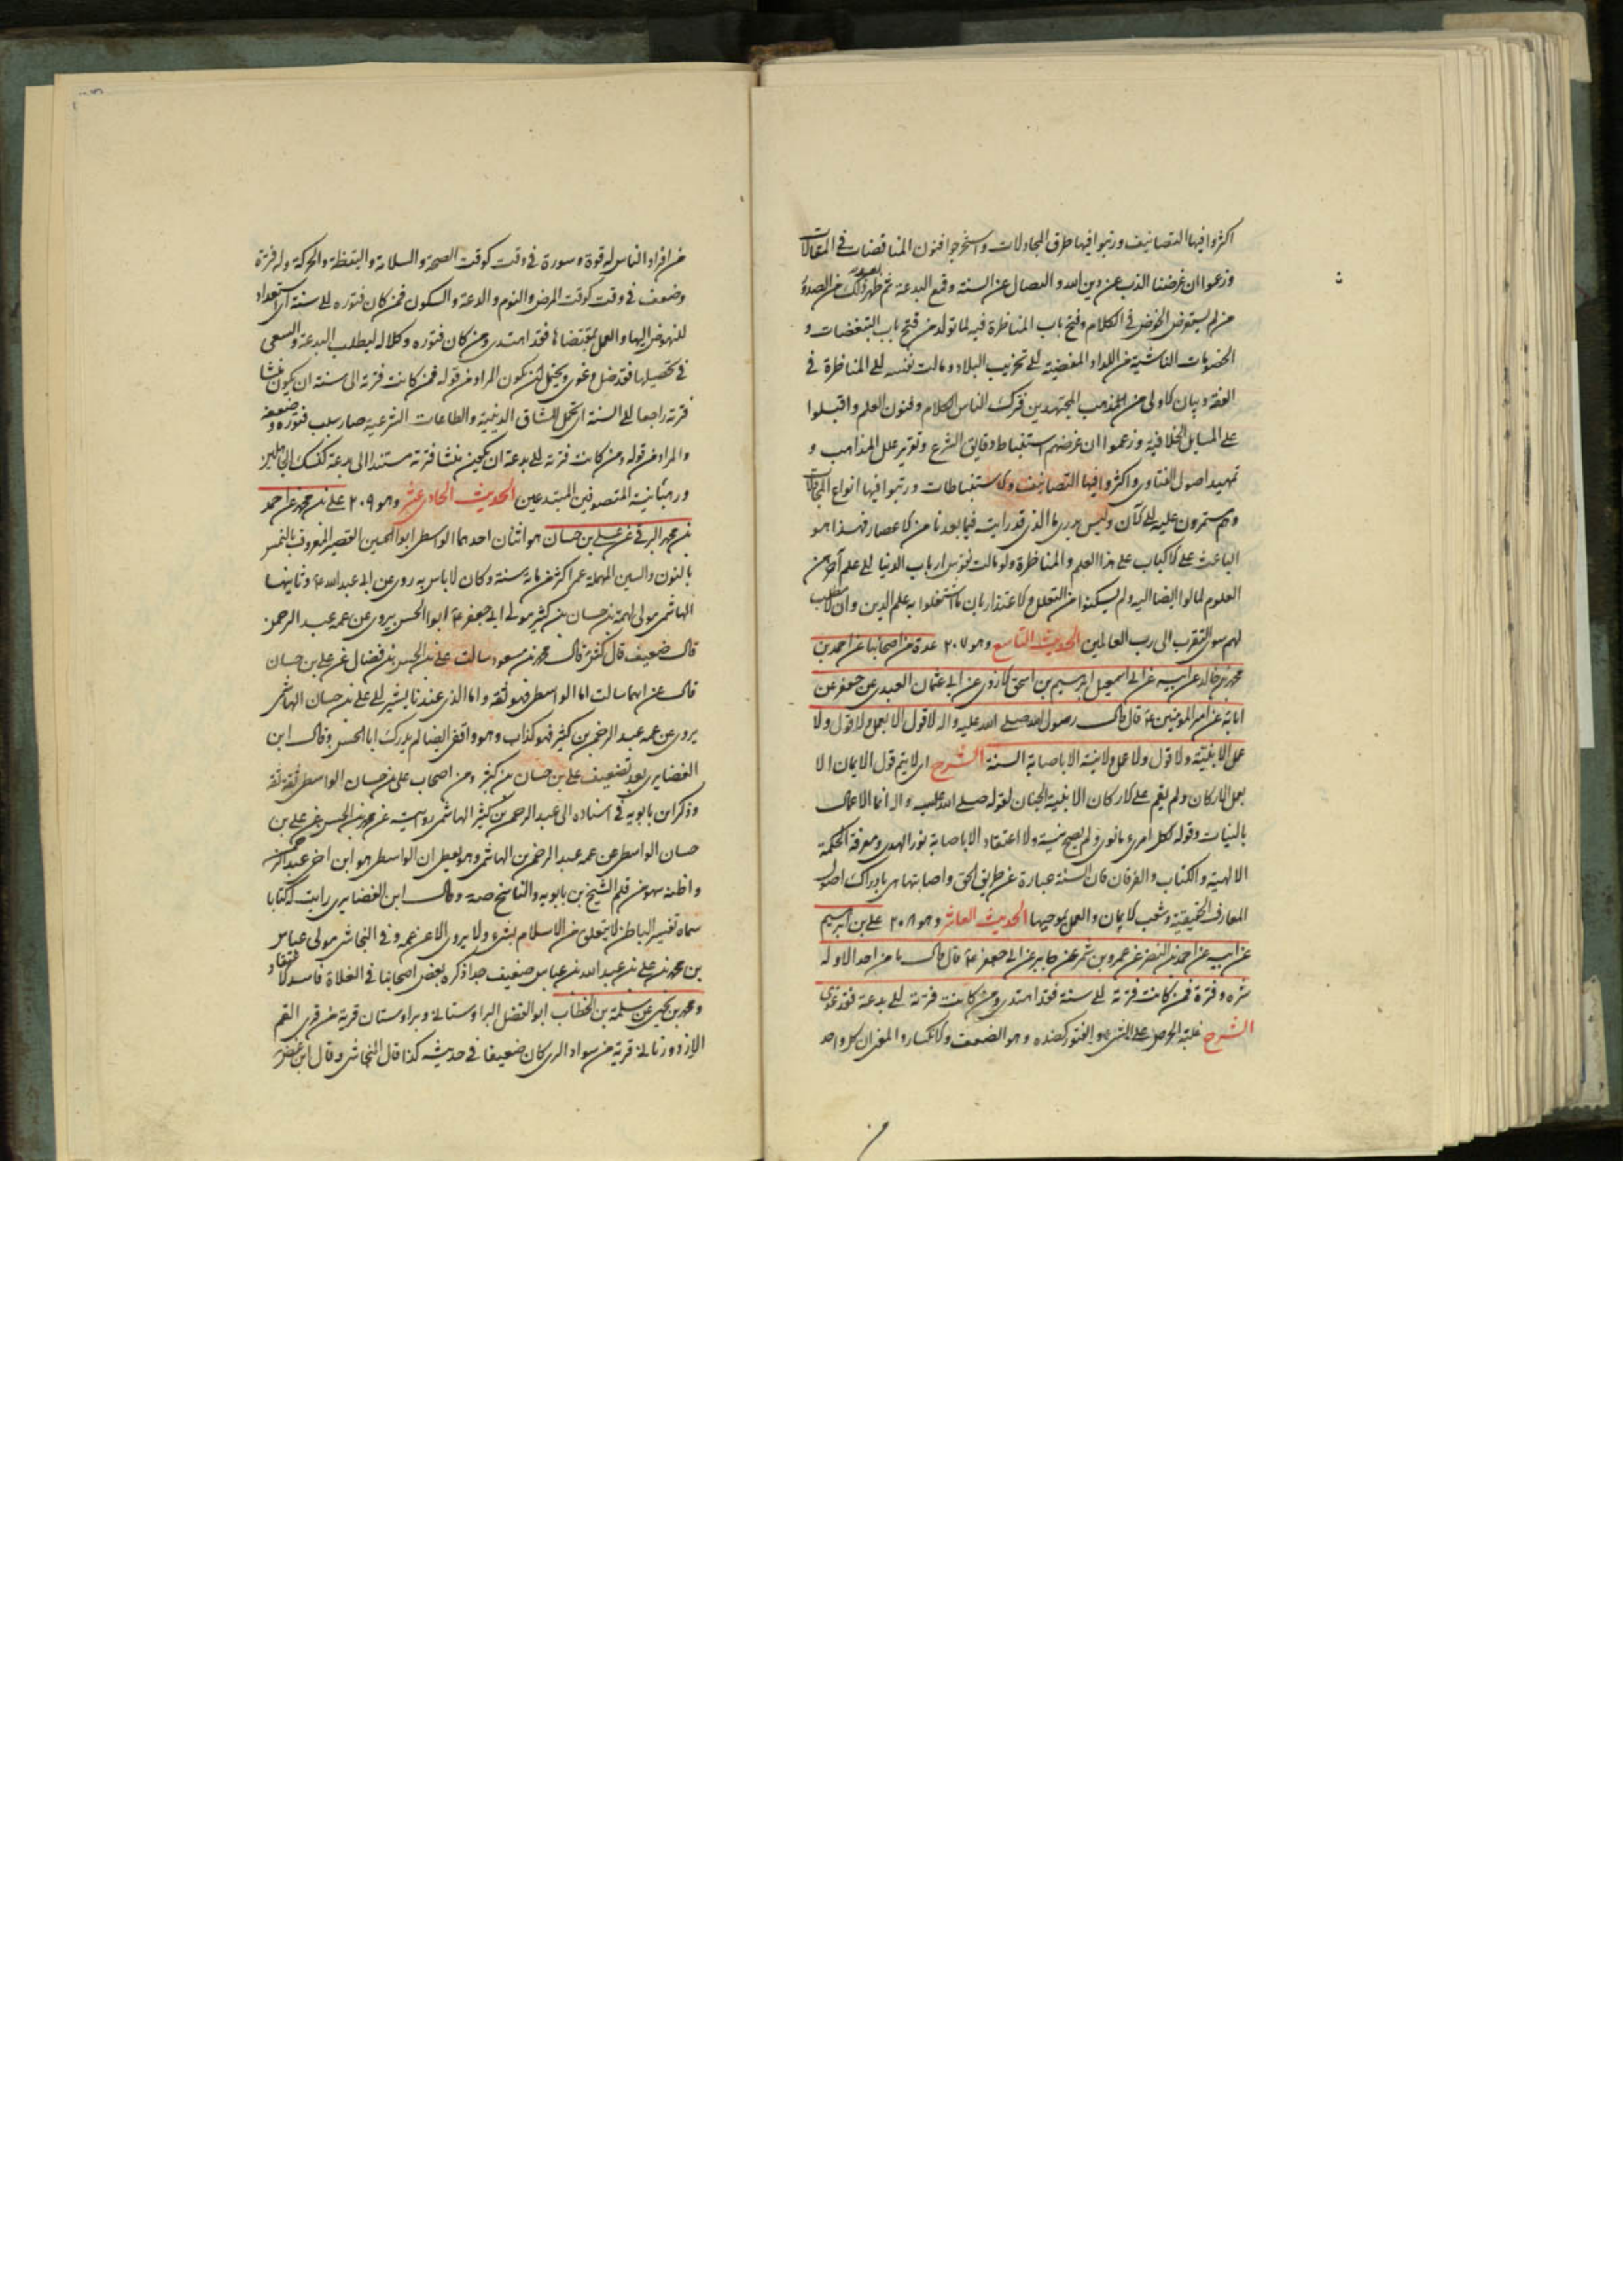 اكثروا فيها التصانيف ورتبوا فيها طرق المجادلات واستخرجوا فنون المناقضات في المقالات
وزعموا ان غرضنا الذب عن دين الله والنضال عن السنة وقمع البدعة ثم ظهر بعد ذلك من الصدور
من لم يستغرض الخوض في الكلام وفتح باب المناظرة فيه لما تولد من فتح باب التبغضات و
الخصومات الناشية من اللداد المفضية الى تخريب البلاد ومالت نفسه الى المناظرة في
الفقه وبيان الاولى من المذهب المجتهدين فترك الناس الكلام وفنون العلم واقبلوا
على المسايل الخلافية وزعموا ان غرضهم استنباط دقايق الشرع وتقرير علل المذاهب و
تمهيد اصول الفتاوى واكثروا فيها التصانيف والاستنباطات ورتبوا فيها انواع المجادلات
وهم مستمرون عليه الى الآن وليس يدرى ما الذي قدر ايت فيما بعدنا من الاعصار فهذا هو
الباعث على الاكباب على هذا العلم والمناظرة ولو مالت نفوس ارباب الدنيا الى علم آخر من
العلوم لمالوا ايضا اليه ولم يسكنوا من التعلل والاعتذار بان ما اشتغلوا به علم الدين وان لا مطلب
لهم سوى التقرب الى رب العالمين الحديث التاسع وهو ٢٠٧ عدة من اصحابنا عن احمد بن
محمد بن خالد عن ابيه عن ابي اسمعيل ابرهيم بن اسحق الازدى عن ابي عثمان العبدى عن جعفر عن
ابائه عن امير المؤمنين ع قال قال رسول الله صلى الله عليه واله لا قول الا بعمل ولا قول ولا
عمل الا بنية ولا قول ولا عمل ولا نية الا باصابة السنة الشرح اى لا يتم قول الايمان الا
بعمل الاركان ولم يقم على الاركان الا بنية الجنان لقوله صلى الله عليه واله انما الاعمال
بالنيات وقوله لكل امرىء ما نوى ولم يصح نية ولا اعتقاد الا باصابة نور الهدى ومعرفة الحكمة
الالهية والكتاب والفرقان فان السنة عبارة عن طريق الحق واصابتها هى بادراك اصول
المعارف الحقيقية وشعب الايمان والعمل بموجبها الحديث العاشر وهو ٢٠٨ على بن ابرهيم
عن ابيه عن احمد بن النضر عن عمرو بن شمر عن جابر عن ابي جعفر ع قال قال ما من احد الا وله
شره وفترة فمن كانت فترته الى سنة فقد اهتدى ومن كانت فترته الى بدعة فقد غوى
الشرح غلبة الحرص على الشىء والفتور كضده وهو الضعف والانكسار والمعنى ان كل واحد
من افراد الناس له قوة وسورة في وقت كوقت الصحة والسلامة واليقظة والحركة وله فترة
وضعف في وقت كوقت المرض والنوم والدعة والسكون فمن كان فتوره الى سنة اى استعداد
للنهوض اليها والعمل بمقتضاها فقد اهتدى ومن كان فتوره وكلاله ليطلب البدعة والسعى
في تحصيلها فقد ضل وغوى ويحتمل ان يكون المراد من قوله فمن كانت فترته الى سنة ان يكون منشا
فترته راجعا الى السنة اى تحمل المشاق الدينية والطاعات الشرعية صار سبب فتوره وضعفه
والمراد من قوله ومن كانت فترته الى بدعة ان يكون منشا فترته مستندا الى بدعة كنسك الجاهلين
ورهبانية المتصوفين المبتدعين الحديث الحادى عشر وهو ٢٠٩ على بن محمد عن احمد
بن محمد البرقى عن على بن حسان هو اثنان احدهما الواسطى ابو الحسين القصير المعروف بالنمس
بالنون والسين المهملة عمر اكثر من مائة سنة وكان لا باس به روى عن ابي عبد الله ع وثانيها
الهاشمى مولى لهم بن حسان بن كثير مولى ابي جعفر ع ابو الحسن يروى عن عمه عبد الرحمن
قال ضعيف قال كش قال محمد بن مسعود سالت على بن الحسن بن فضال عن على بن حسان
قال عن ايهما سالت اما الواسطى فهو ثقة واما الذى عندنا يشير الى على بن حسان الهاشمى
يروى عن عمه عبد الرحمن بن كثير فهو كذاب وهو واقفى ايضا لم يدرك ابا الحسن وقال ابن
الغضايرى بعد تضعيف على بن حسان بن كثير ومن اصحاب على بن حسان الواسطى ثقة ثقة
وذكر ابن بابويه في اسناده الى عبد الرحمن بن كثير الهاشمى روايته عن محمد بن الحسن عن على بن
حسان الواسطى عن عمه عبد الرحمن الهاشمى وهو يعطى ان الواسطى هو ابن اخى عبد الرحمن
واظنه سهوا من قلم الشيخ بن بابويه والناسخ صه وقال ابن الغضايرى رايت له كتابا
سماه تفسير الباطن لا يتعلق من الاسلام بشىء ولا يروى الا عن عمه وفي النجاشى مولى عباس
بن محمد بن على بن عبد الله بن عباس ضعيف جدا ذكره بعض اصحابنا في الغلاة فاسد الاعتقاد
ومحمد بن يحيى عن سلمة بن الخطاب ابو الفضل البراوستانى وبراوستان قرية من قرى القم
الازدورنانى قرية من سواد الرى كان ضعيفا في حديثه كذا قال النجاشى وقال ابن الغضايرى